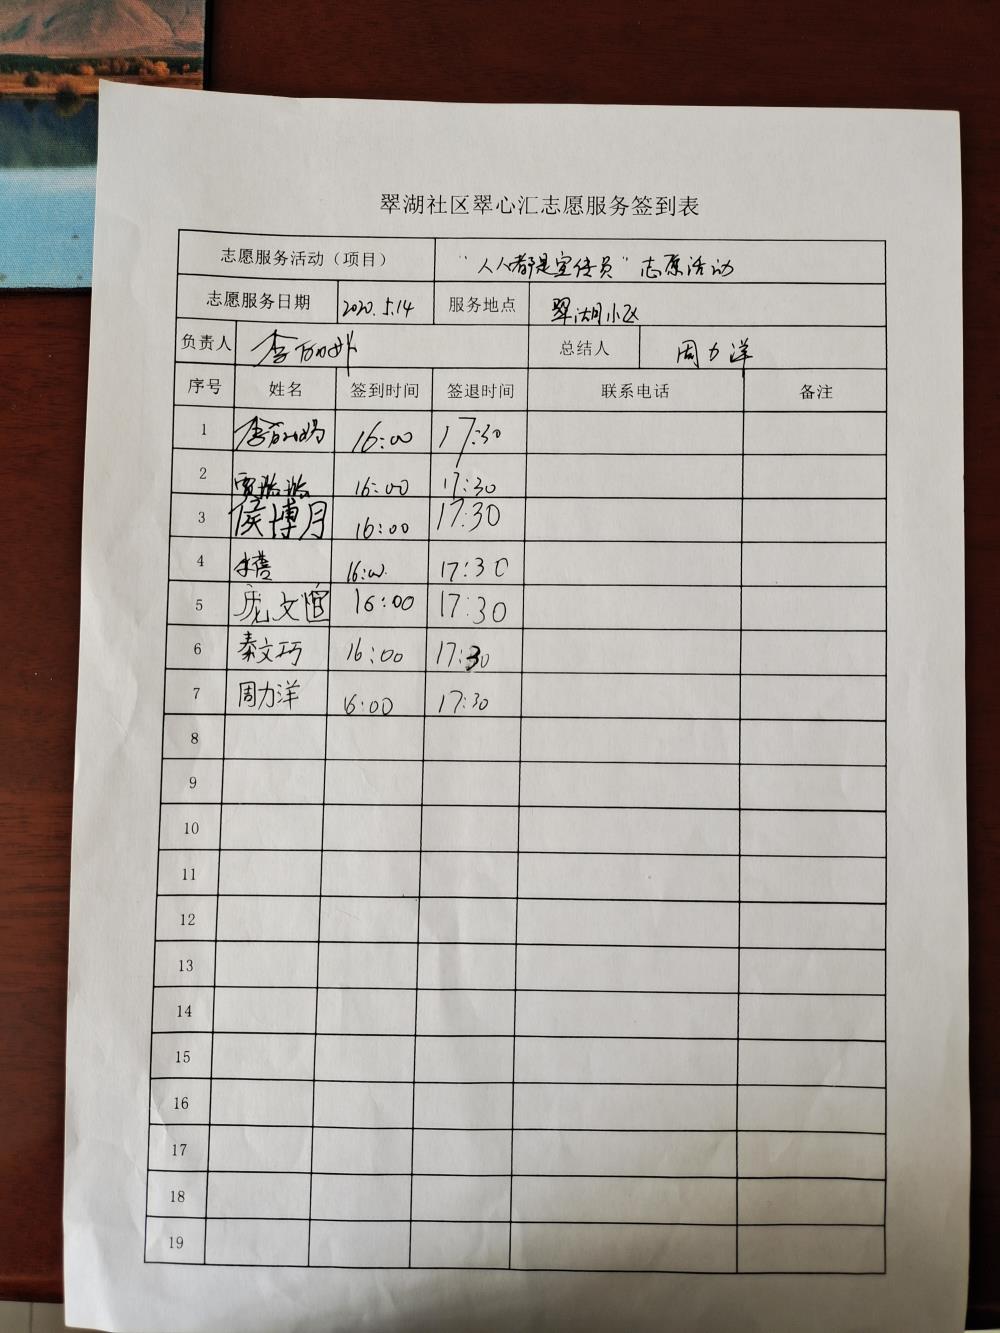 翠湖社区翠心汇志愿服务签到表
志愿服务活动（项目） “人人都是宣传员”志愿活动
志愿服务日期 2020.5.14 服务地点 翠湖小区
负责人 李 总结人 周力洋
序号 姓名 签到时间 签退时间 联系电话 备注
1 李 16:00 17:30
2 贾 16:00 17:30
3 侯博月 16:00 17:30
4 16:00 17:30
5 庞文 16:00 17:30
6 秦文巧 16:00 17:30
7 周力洋 16:00 17:30
8
9
10
11
12
13
14
15
16
17
18
19